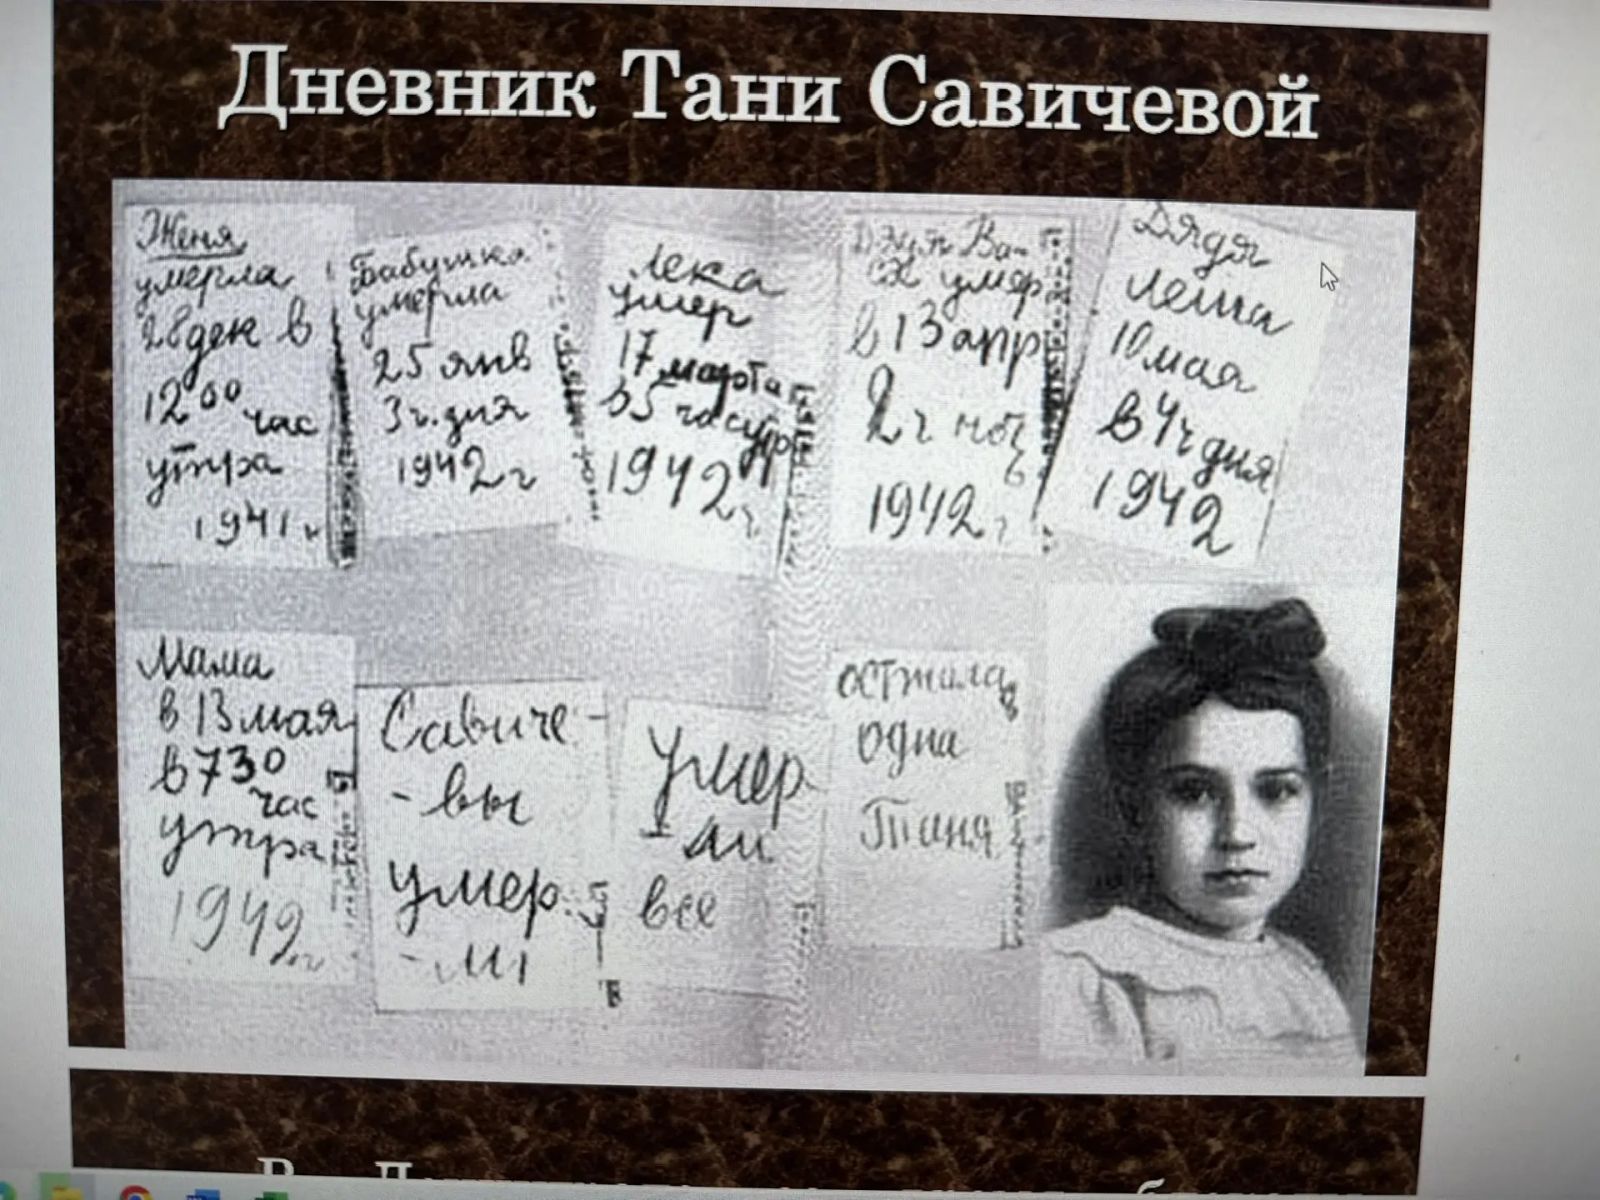 Дневник Тани Савичевой
Женя
умерла
28 дек в
12 00 час
утра
1941 г
Бабушка
умерла
25 янв
3 ч. дня
1942 г
Лека
умер
17 марта
в 5 час утр
1942 г
Дядя Ва-
ся умер
в 13 апр
2 ч ноч
1942 г
Дядя
Леша
10 мая
в 4 ч дня
1942
Мама
в 13 мая
в 7 30
час
утра
1942 г
Савиче-
-вы
умер
-ли
Умер
-ли
все
осталась
одна
Таня